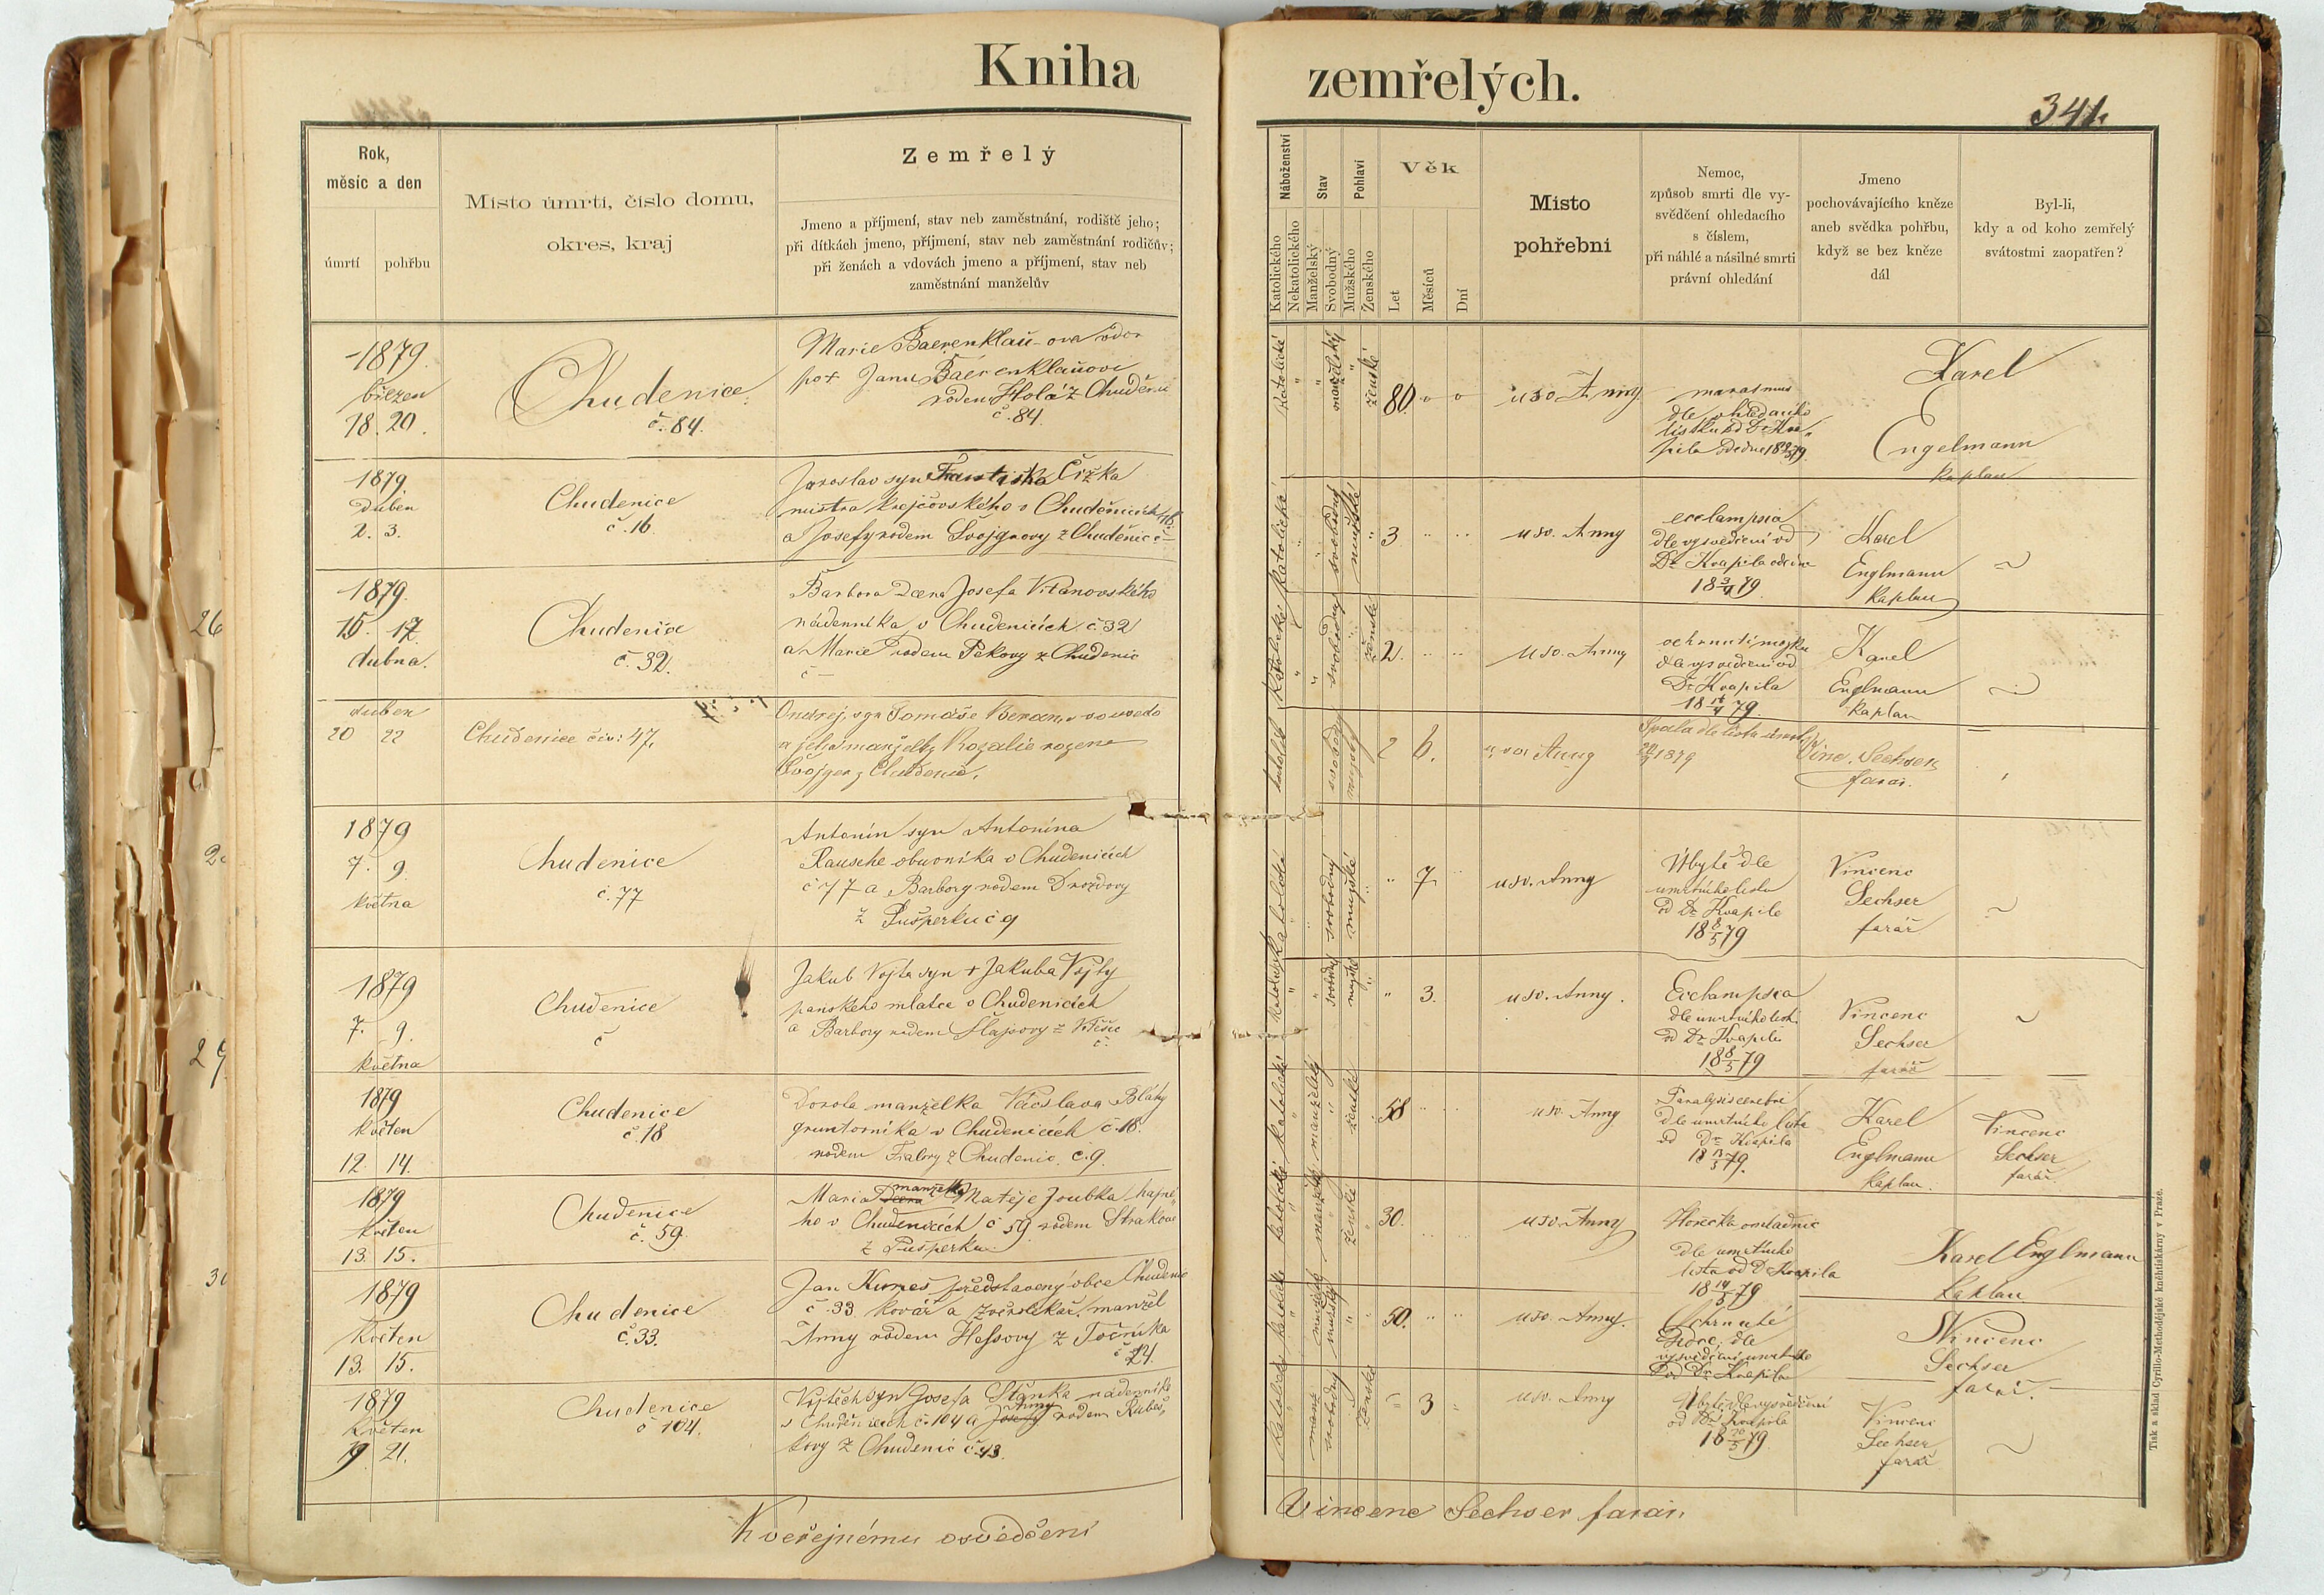 Kniha zemřelých.
341.
Rok,
měsíc a den
úmrtí
pohřbu
Místo úmrtí, číslo domu,
okres, kraj
Zemřelý
Jmeno a příjmení, stav neb zaměstnání, rodiště jeho;
při dítkách jmeno, příjmení, stav neb zaměstnání rodičův;
při ženách a vdovách jmeno a příjmení, stav neb
zaměstnání manželův
Náboženství
Katolického
Nekatolického
Stav
Manželský
Svobodný
Pohlaví
Mužského
Ženského
Věk
Let
Měsíců
Dní
Místo
pohřební
Nemoc,
způsob smrti dle vy-
svědčení ohledacího
s číslem,
při náhlé a násilné smrti
právní ohledání
Jmeno
pochovávajícího kněze
aneb svědka pohřbu,
když se bez kněze
dál
Byl-li,
kdy a od koho zemřelý
svátostmi zaopatřen?
1879.
březen
18. 20.
Chudenice
č. 84.
Marie Baerenklau-ova
po + Janu Baerenklauovi
rodem Holá z Chuděnic
č. 84.
katolické
manželský
ženské
80
u sv. Anny
marasmus
dle ohledacího
lístku od Dr. Kva-
pila
Karel
Engelmann
kaplan
1879
Duben
2. 3.
Chudenice
č. 16
Jaroslav syn Františka Čižka
mistra krejčovského v Chuděnicích 16.
a Josefy rodem Švojgrovy z Chuděnic č –
katolické
svobodný
mužské
3
u sv. Anny
ecclampsia
dle vysvědčení od
Dr. Kvapila
18 3/4 79
Karel
Englmann
Kaplan
1879.
15. 17.
dubna.
Chudenice
č. 32.
Barbora dcera Josefa Vítanovského
nádenníka v Chudenicích č. 32
a Marie rodem Pekovy z Chudenic
č –
katolické
svobodný
ženské
2.
u sv. Anny
ochrnutí mozku
dle vysvědčení od
Dr. Kvapila
Karel
Englmann
Kaplan
duben
20 22
Chudenice čís: 47.
Ondřej, syn Tomáše Beran,
a jeho manželky Rozalie rozené
Švojger z Chudenic.
katolic
svobodný
mužský
2 6.
u sv. Anny
1879
Vinc. Sechser
farář.
1879
7. 9.
května
Chudenice
č. 77
Antonín syn Antonína
Rausche obuvníka v Chudenicích
č 77 a Barbory rodem Drozdovy
z Pušperku č 9
katolické
svobodný
mužské
7
u sv. Anny
Úbytě dle
umrtního listu
od Dr. Kvapila
18 8/5 79
Vincenc
Sechser
farář
1879
7. 9.
května
Chudenice
č
Jakub Vojta syn + Jakuba Vojty
panského mlatce v Chudenicích
a Barbory rodem Šlajsovy z
č.
katolické
svobodný
mužské
3.
u sv. Anny.
Ecclampsia
dle umrtního listu
od Dr. Kvapila
18 8/5 79
Vincenc
Sechser
farář
1879
Květen
12. 14.
Chudenice
č. 18
Dorota manželka Václava Bláhy
gruntovníka v Chudenicích č. 18.
rodem Fialovy z Chudenic. č. 9.
katolické
manželský
ženské
58
u sv. Anny
Paralysis cerebri
dle umrtního listu
od Dr. Kvapila
18 13/5 79.
Karel
Englmann
Kaplan.
Vincenc
Sechser
farář
1879
Květen
13. 15.
Chudenice
č. 59.
Maria dcera manželka Matěje Joubka hajné-
ho v Chudenicích č 59 rodem Strakové
z Pušperku
katolické
manželský
ženské
30.
u sv. Anny
Horečka omladnic
dle umrtního
listu od Dr Kvapila
18 14/5 79
Karel Englmann
kaplan
1879
Květen
13. 15.
Chudenice
č. 33.
Jan Kuneš představený obce Chudenic
č. 33. kovář a zvěrolékař, manžel
Anny rodem Hessovy z Točníka
č 24.
katolické
manželský
mužský
50.
u sv. Anny.
Ochrnutí
Srdce, dle
od Dr. Kvapila
Vincenc
Sechser
farář.
1879
Květen
19 21.
Chudenice
č 104.
Vojtěch syn Josefa Staňka nádenníka
v Chudenicích č. 104 a Josefy Anny rodem Rubeš-
kovy z Chudenic č. 43.
katolické
svobodný
ženské
3
u sv. Anny
Úbytě dle vysvědčení
od Dr. Kvapila
18 20/5 79.
Vincenc
Sechser
farář
K veřejnému osvědčení
Vincenc Sechser farář.
Tisk a sklad Cyrillo-Methodějské knihtiskárny v Praze.